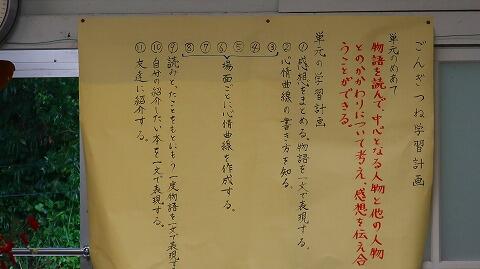 ごんぎつね学習計画
単元のめあて
物語を読んで、中心となる人物と他の人物
とのかかわりについて考え、感想を伝え合
うことができる。
単元の学習計画
①感想をまとめる。物語を一文で表現する。
②心情曲線の書き方を知る。
③
④
⑤
⑥
⑦
⑧
場面ごとに心情曲線を作成する。
⑨読みとったことをもとにもう一度物語を一文で表現する
⑩自分の紹介したい本を一文で表現する。
⑪友達に紹介する。